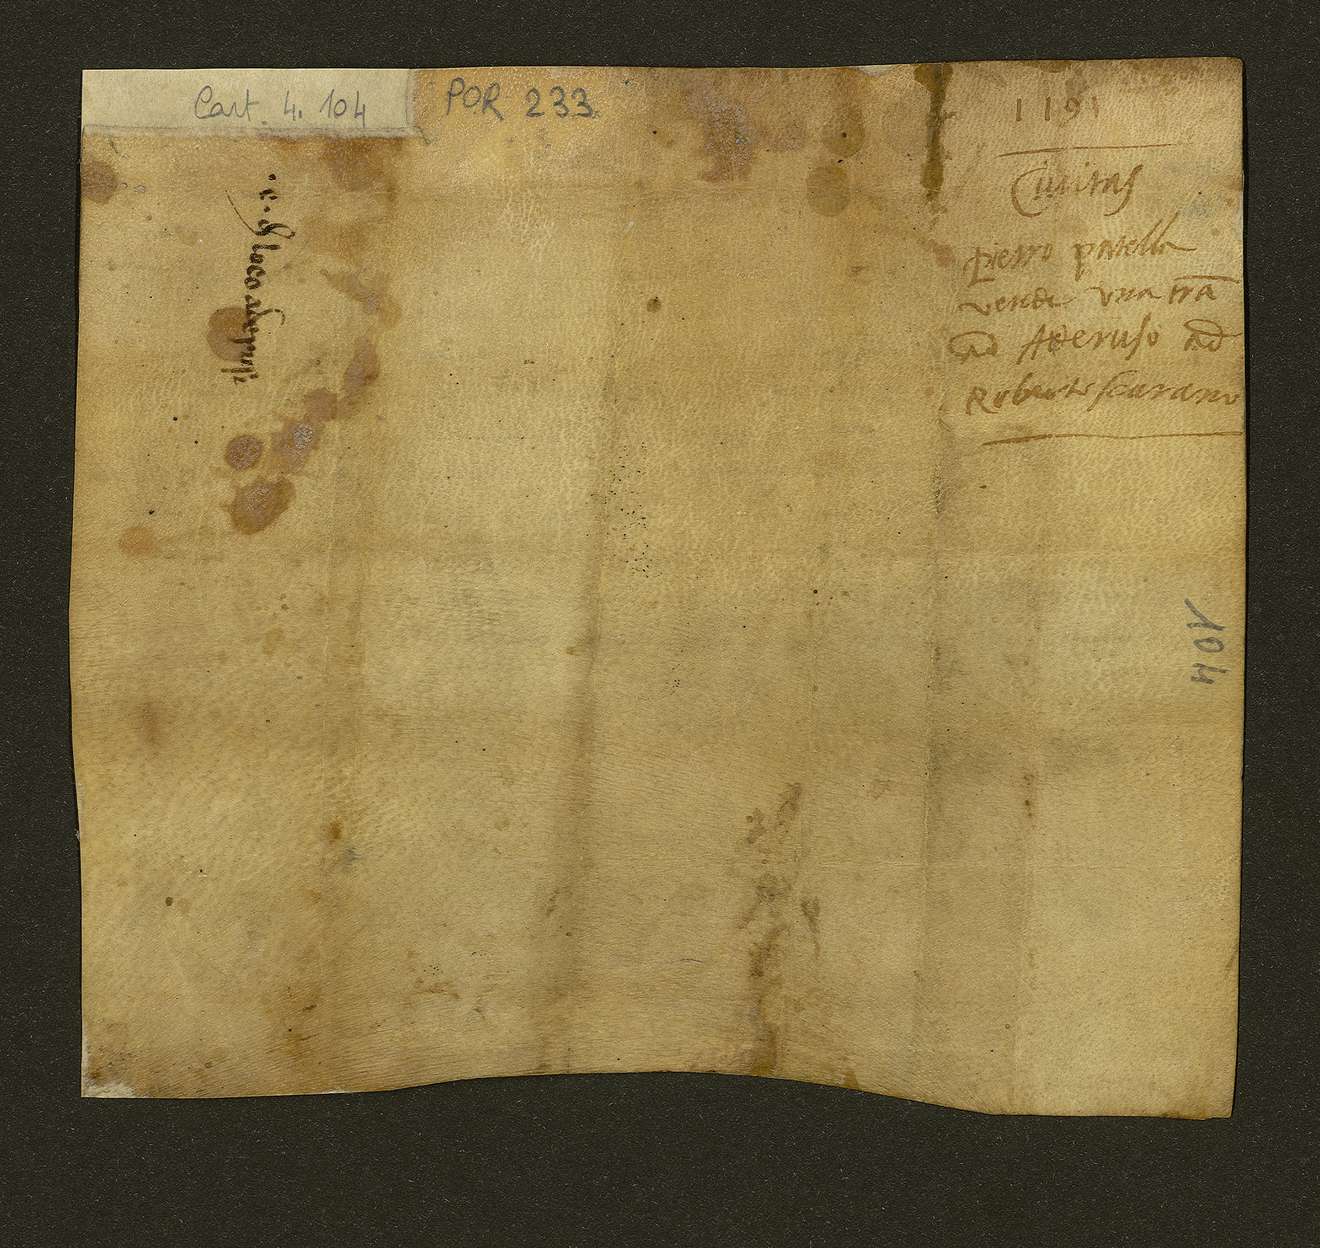 Cart. 4. 104
POR 233
1191
Civitas
Pietro patella
vende una trā
ad Aderuso ad
Roberto scarano
104
.c. loco